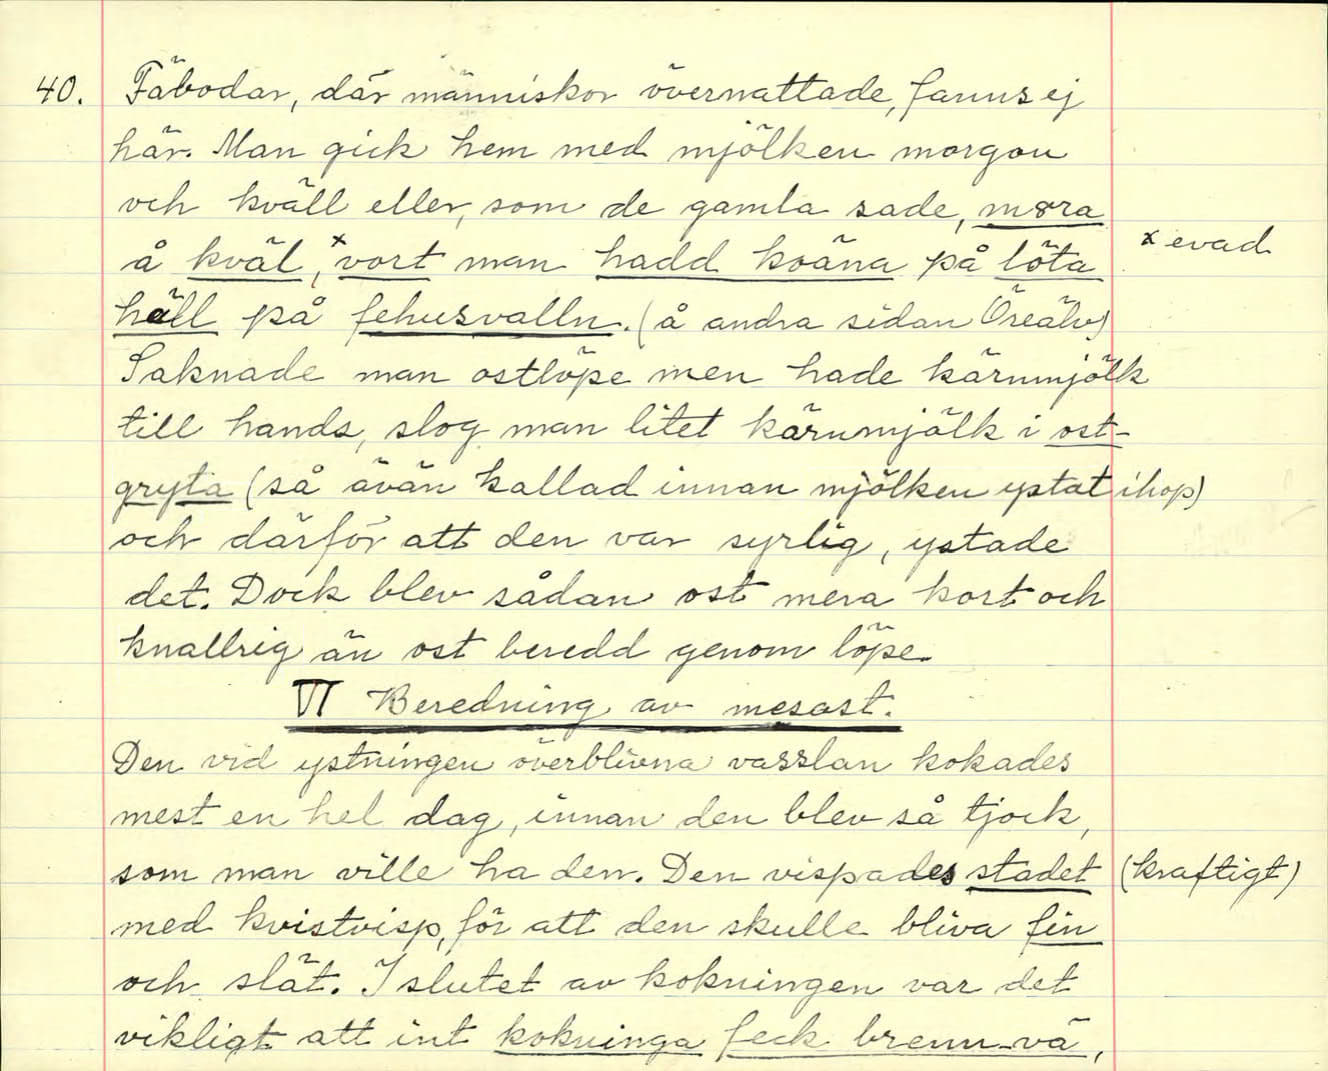 40. Fäbodar, där människor övernattade, fanns ej
här. Man gick hem med mjölken morgon
och kväll eller, som de gamla sade, mora
å kväl, x vort man hadd koäna på löta x evad
häll på fehusvalln. (å andra sidan Öreälv)
Saknade man ostlöpe men hade kärnmjölk
till hands, slog man litet kärnmjölk i ost-
gryta (så ävän kallad innan mjölken ystat ihop)
och därför att den var syrlig, ystade
det. Dock blev sådan ost mera kort och
knallrig än ost beredd genom löpe.
VI Beredning av mesost.
Den vid ystningen överblivna vasslan kokades
mest en hel dag, innan den blev så tjock,
som man ville ha den. Den vispades stadet (kraftigt)
med kvistvisp, för att den skulle bliva fin
och slät. I slutet av kokningen var det
vikligt att int kokninga feck brenn-vä,